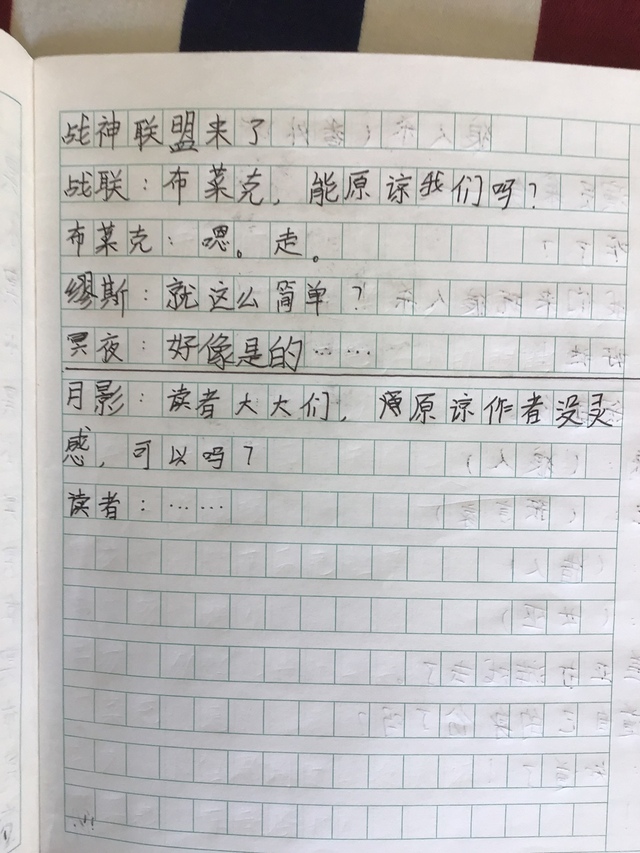 战神联盟来了
战联：布莱克，能原谅我们吗？
布莱克：嗯。走。
缪斯：就这么简单？
冥夜：好像是的……
月影：读者大大们，原谅作者没灵
感，可以吗？
读者：……